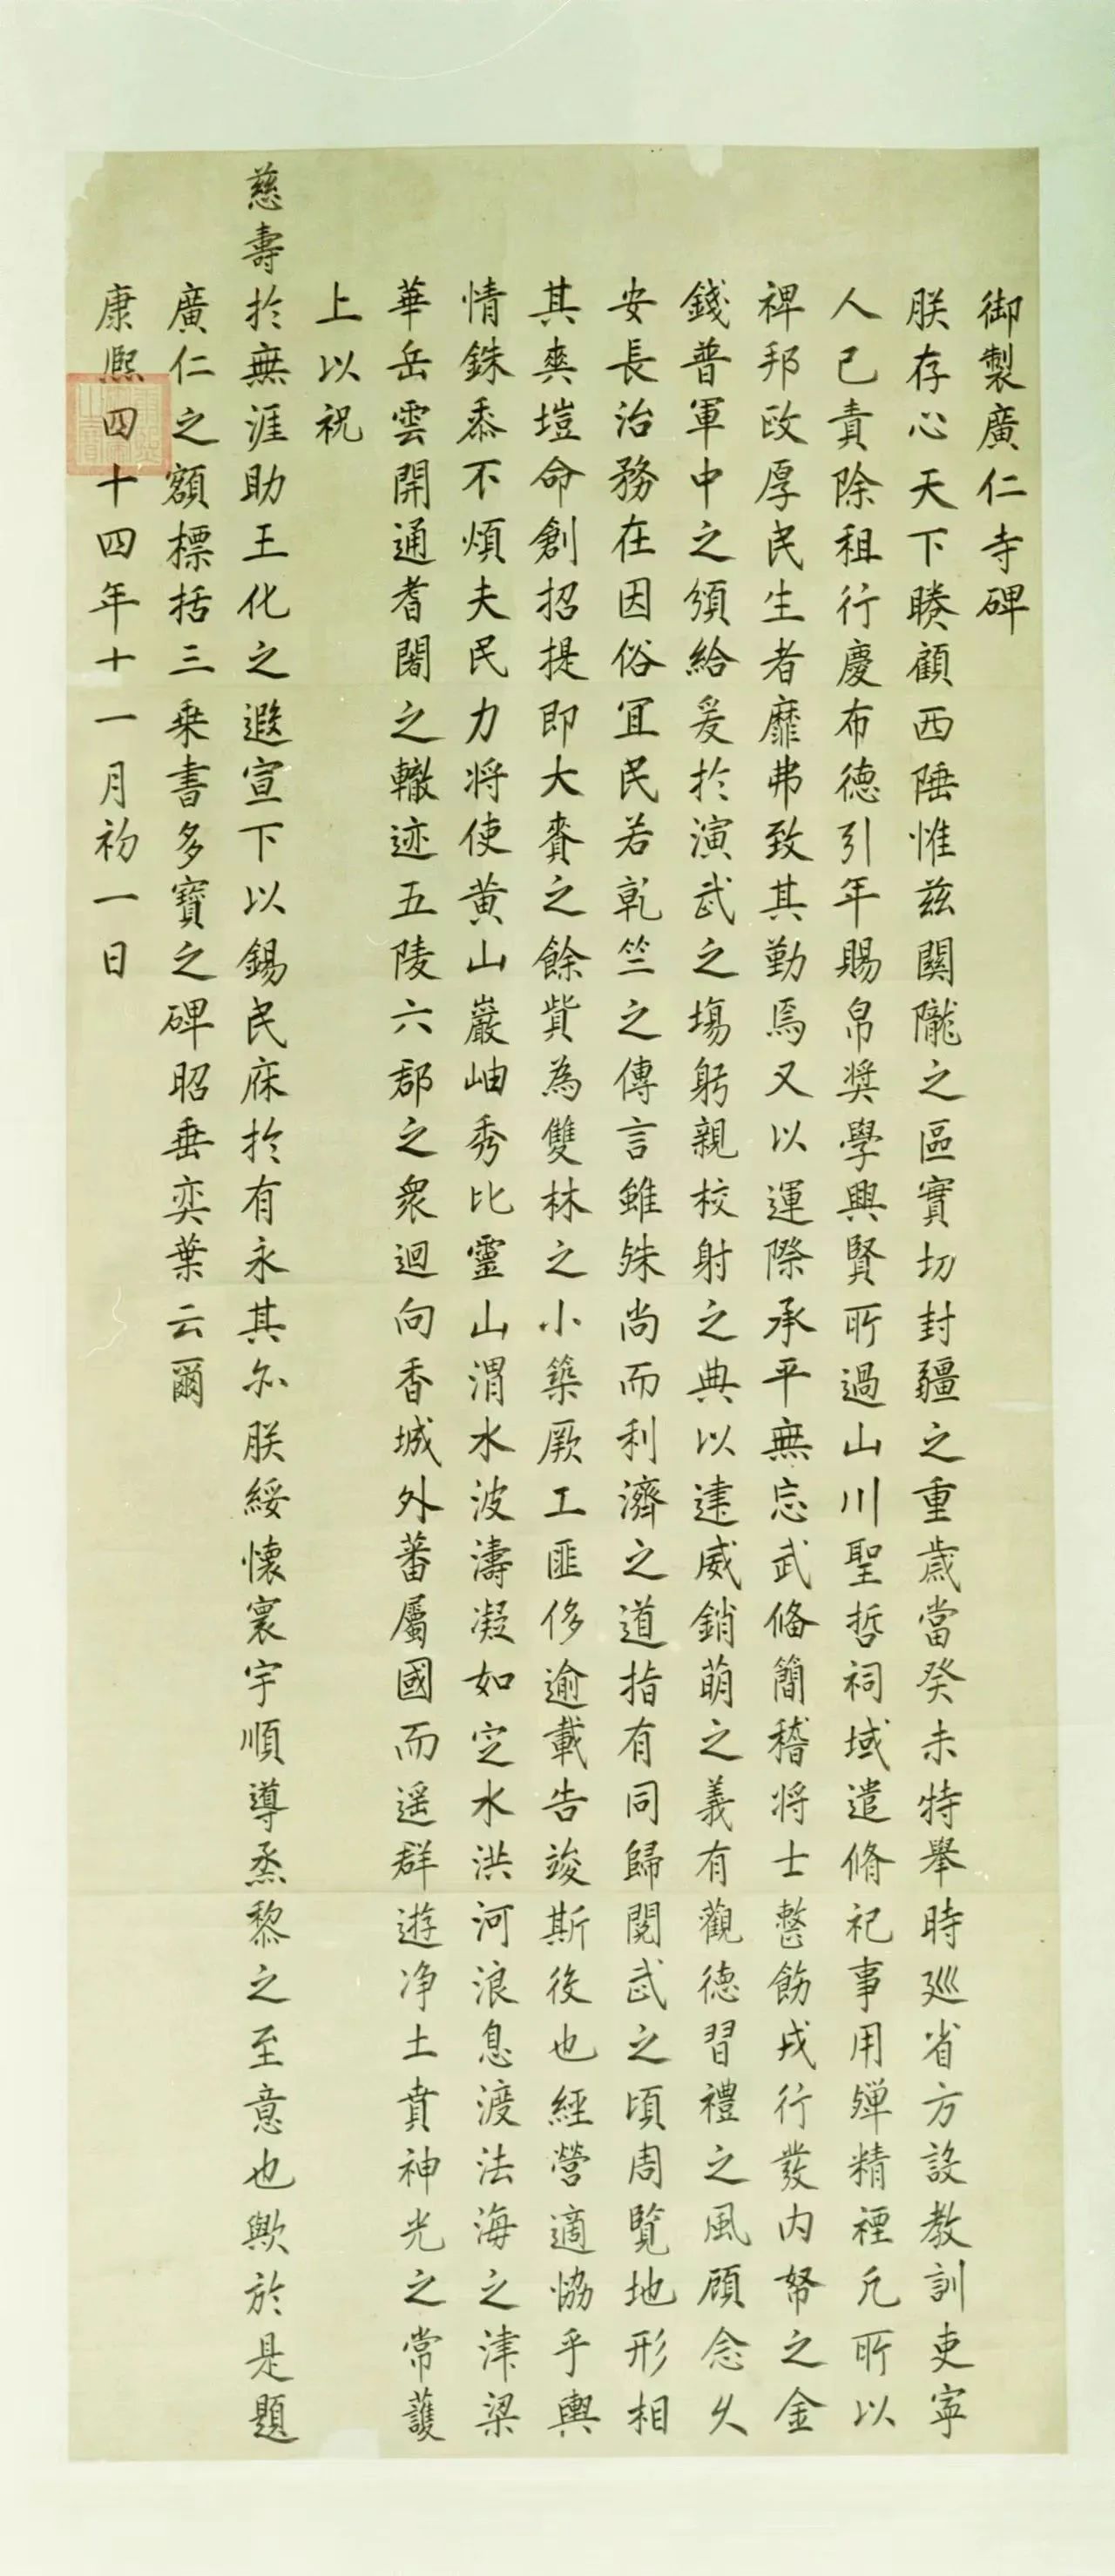 御製廣仁寺碑
朕存心天下睠顧西陲惟茲關隴之區實切封疆之重歲當癸未特舉時廵省方設教訓吏寧
人已責除租行慶布德引年賜帛獎學興賢所過山川聖哲祠域遣脩祀事用殫精禋凡所以
裨邦政厚民生者靡弗致其勤焉又以運際承平無忘武備簡稽將士整飭戎行發內帑之金
錢普軍中之頒給爰於演武之場躬親校射之典以建威銷萌之義有觀德習禮之風顧念久
安長治務在因俗宜民若乾竺之傳言雖殊尚而利濟之道指有同歸閱武之頃周覽地形相
其爽塏命創招提即大賚之餘貲為雙林之小築厥工匪侈逾載告竣斯役也經營適協乎輿
情銖黍不煩夫民力將使黄山巖岫秀比靈山渭水波濤凝如定水洪河浪息渡法海之津梁
華岳雲開通耆闍之轍迹五陵六郡之衆迴向香城外蕃屬國而遥群遊净土賁神光之常護
上以祝
慈壽於無涯助王化之遐宣下以錫民庥於有永其亦朕綏懷寰宇順導烝黎之至意也歟於是題
廣仁之額標括三乗書多寶之碑昭垂奕葉云爾
康熙四十四年十一月初一日